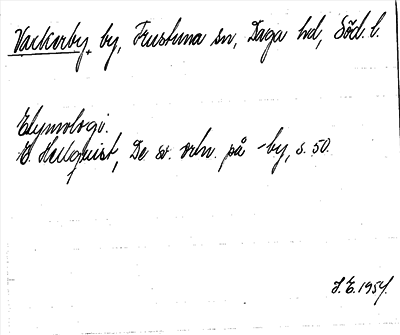 Vackerby, by, Frustuna sn, Daga hd, Söd. l.
Etymologi.
E. Hellquist, De sv. ortn. på -by, s. 50.
S.E. 1954.